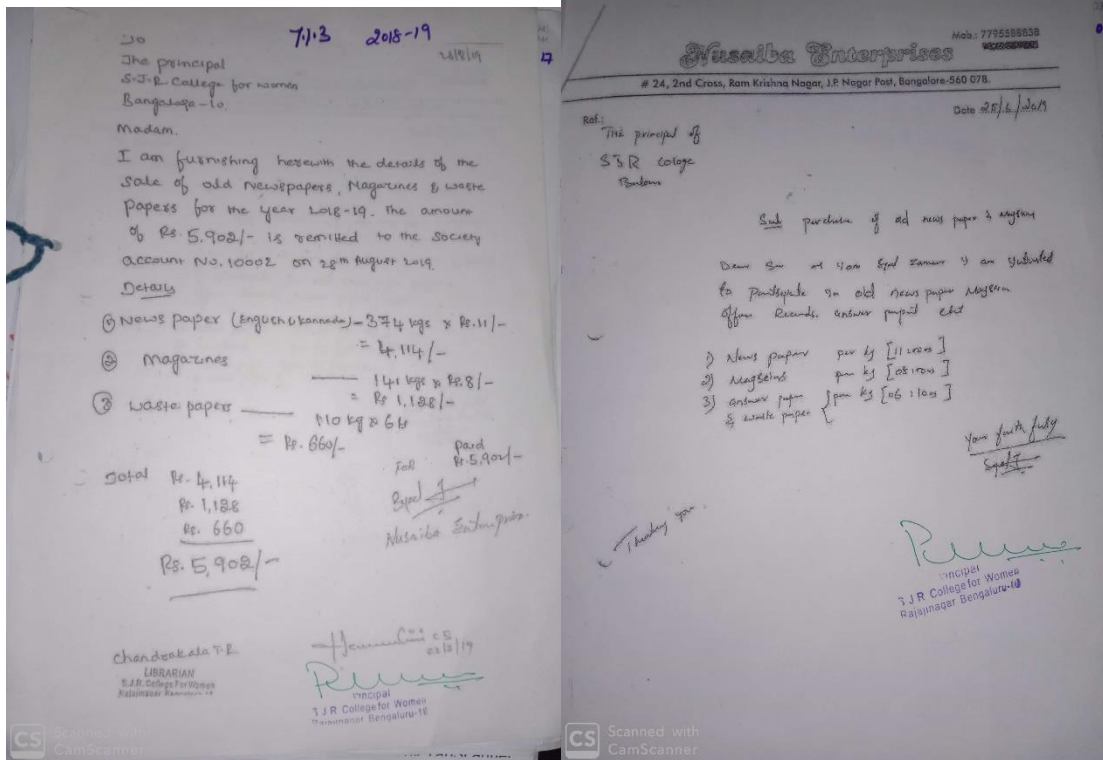 7.1.3 2018-19
To
28/8/19
The principal
S.J.R College for women
Bangalore-10.
Madam.
I am furnishing herewith the details of the
Sale of old Newspapers, Magazines & waste
Papers for the year 2018-19. The amount
of Rs. 5,902/- is remitted to the Society
account No. 10002 on 28th August 2019.
Details
① News paper (English & Kannada) - 374 kgs x Rs.11/-
= 4,114/-
② Magazines
141 kgs x Rs.8/-
= Rs 1,128/-
③ waste papers
110 kg x 6
= Rs. 660/-
Paid
Rs.5,902/-
For
Syed
Nusaiba Enterprises.
Total Rs. 4,114
Rs. 1,128
Rs. 660
Rs. 5,902/-
Chandrakala T.R
LIBRARIAN
S.J.R. College For Women
Rajajinagar
Principal
S J R College for Women
Rajajinagar Bengaluru-10
CS Scanned with
CamScanner
Mob.: 7795588838
Nusaiba Enterprises
# 24, 2nd Cross, Ram Krishna Nagar, J.P. Nagar Post, Bangalore-560 078.
Date 25/6/2019
Ref.:
The principal of
SJR College
Sub purchase of old news paper &
Dear Sir
to in old news paper
Records. answer
1) News paper per kg [11
2) per kg [08
3) answer paper per kg [06
& waste paper
Your faithfully
Syed
Thanking you.
Principal
S J R College for Women
Rajajinagar Bengaluru-10
CS Scanned with
CamScanner